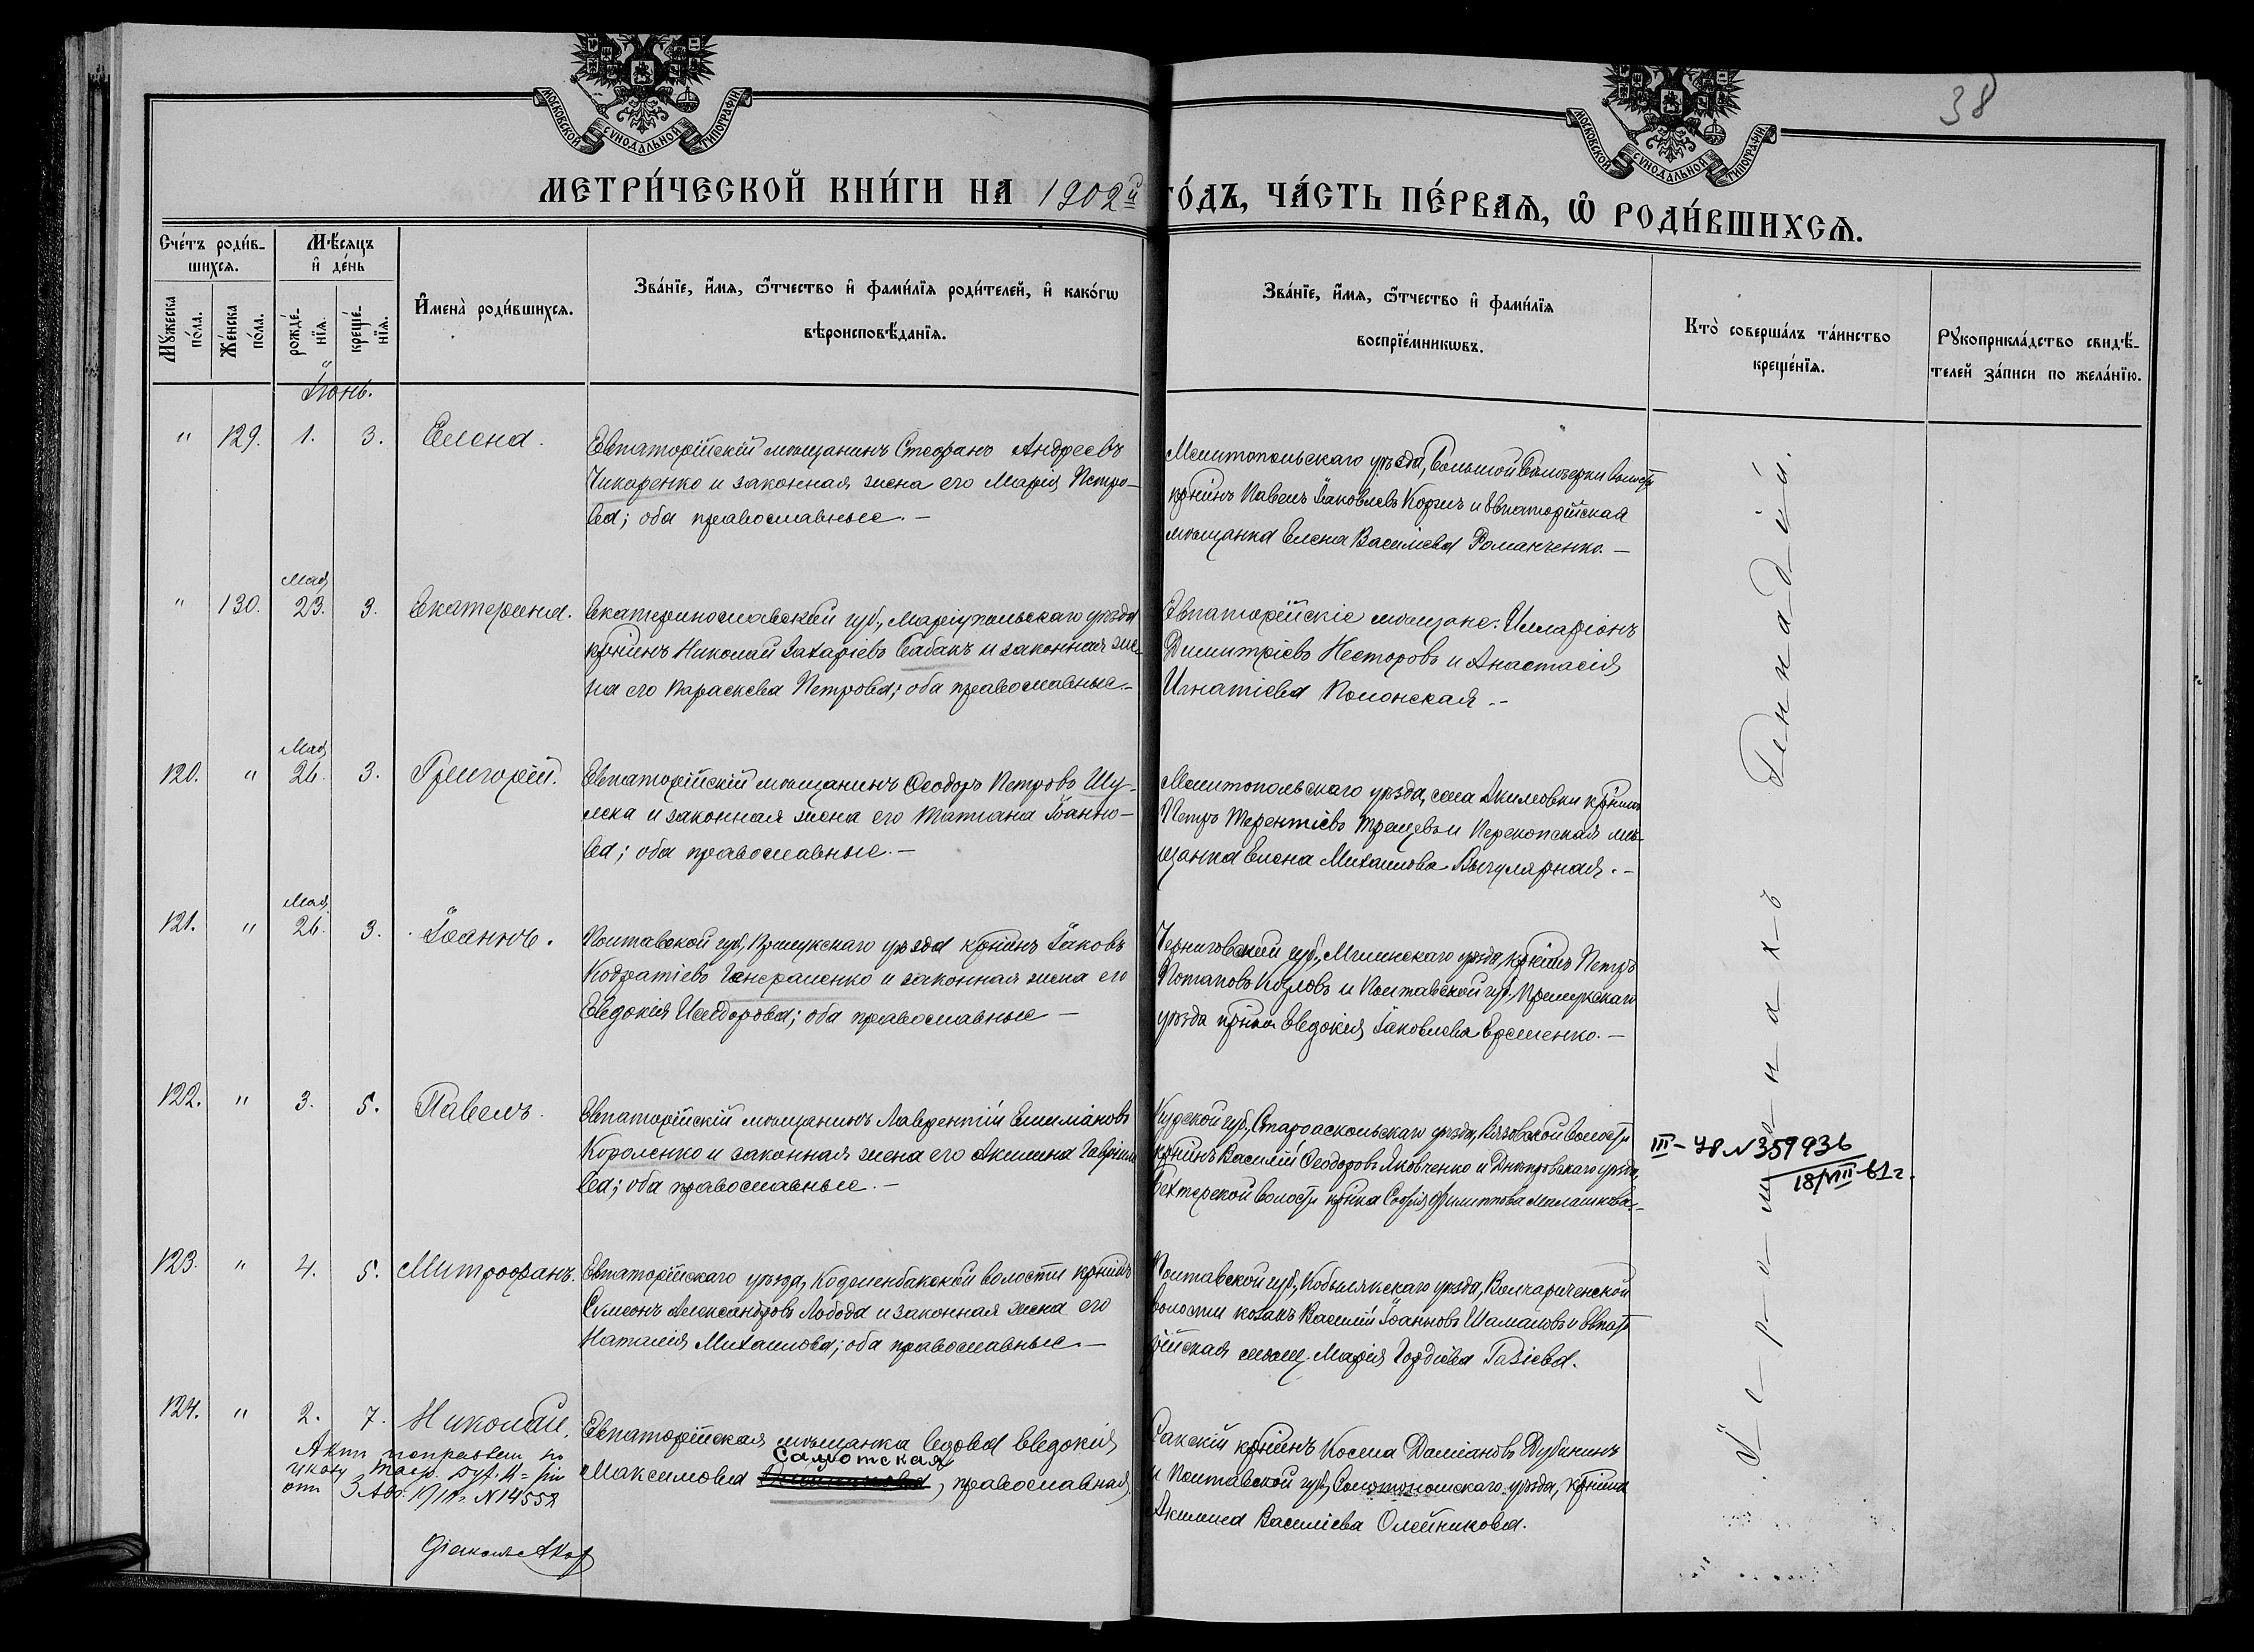 МОСКОВСКОЙ СѴНОДАЛЬНОЙ ТИПОГРАФІИ
МОСКОВСКОЙ СѴНОДАЛЬНОЙ ТИПОГРАФІИ
38
МЕТРИ́ЧЕСКОЙ КНИ́ГИ НА 1902й ГО́ДЪ, ЧА́СТЬ ПЕ́РВАѦ, Ѡ РОДИ́ВШИХСѦ.
Сче́тъ роди́в-
шихсѧ.
Мꙋ́жеска
по́ла.
Же́нска
по́ла.
Мѣ́сѧцъ
и҆ де́нь
рожде́-
нїѧ.
креще́-
нїѧ.
И҆мена̀ роди́вшихсѧ.
Зва́нїе, и҆́мѧ, ѻ҆́тчество и҆ фами́лїѧ роди́телей, и҆ како́гѡ
вѣроисповѣ́данїѧ.
Зва́нїе, и҆́мѧ, ѻ҆́тчество и҆ фами́лїѧ
воспрїе́мникѡвъ.
Кто̀ соверша́лъ та́инство
креще́нїѧ.
Рꙋкоприкла́дство свидѣ́-
телей за́писи по жела́нїю.
Іюнь.
" 129. 1. 3. Елена.
Евпаторійскій мѣщанинъ Стефанъ Андреевъ
Чикоренко и законная жена его Марія Петро-
ва; оба православные.—
Мелитопольскаго уѣзда, Большой Бѣлозерки волости
крнинъ Павелъ Іаковлевъ Коржъ и Евпаторійская
мѣщанка Елена Василіева Романченко.—
Мая
" 130. 23. 3. Екатерина.
Екатеринославской губ., Маріупольскаго уѣзда
крнинъ Николай Захаріевъ Бабакъ и законная же-
на его Параскева Петрова; оба православные.—
Евпаторійскіе мѣщане: Илларіонъ
Димитріевъ Несторовъ и Анастасія
Игнатіева Полонская.—
Мая
120. " 26. 3. Григорій.
Евпаторійскій мѣщанинъ Ѳеодоръ Петровъ Шу-
лска и законная жена его Татіана Іоанно-
ва; оба православные.—
Мелитопольскаго уѣзда, села Акимовки крнинъ
Петръ Терентіевъ и Перекопская мѣ-
щанка Елена Михаилова.—
Мая
121. " 26. 3. Іоаннъ.
Полтавской губ., Прилукскаго уѣзда крнинъ Іаковъ
Кодратіевъ Генераленко и законная жена его
Евдокія Исидорова; оба православные—
Черниговской губ., Мглинскаго уѣзда, крнинъ Петръ
Потаповъ Козловъ и Полтавской губ. Прилукскаго
уѣзда крнка Евдокія Іаковлева Еременко.—
122. " 3. 5. Павелъ.
Евпаторійскій мѣщанинъ Лаврентій Емиліановъ
Короленко и законная жена его Акилина Гавріило
ва; оба православные.—
Курской губ., Старооскольскаго уѣзда, волости
крнинъ Василій Ѳеодоровъ Яковченко и Днѣпровскаго уѣзда,
Бехтерской волости крнка Софія Филиппова Малашкова.—
III-ЯЮ N 359936
18/VIII-61г.
123. " 4. 5. Митрофанъ.
Евпаторійскаго уѣзда, Кодогенбакской волости крнинъ
Сѵмеонъ Александровъ Лобода и законная жена его
Наталія Михаилова; оба православные—
Полтавской губ., Кобылякскаго уѣзда,
волости козакъ Василій Іоанновъ Шамаловъ и Евпато
рійская мѣщ. Марія Гордіева Газіева.
124. " 2. 7. Николай.
Евпаторійская мѣщанка вдова Евдокія
Самотская
Максимова, православная
Сакскій крнинъ Косма Даміановъ Дубининъ
и Полтавской губ., Золотоношскаго уѣзда, крнина
Акилина Василіева Олейникова.
Актъ исправленъ по
указу Тавр. Дух. К-ріи
отъ 3 Авг. N 14552
Іеромонахъ Геннадій.